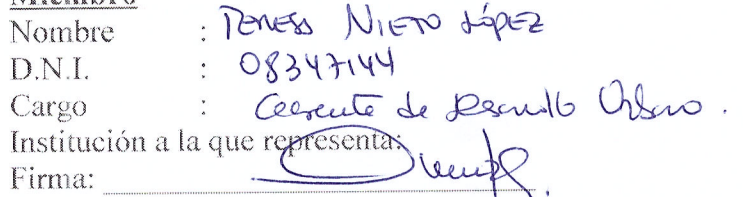 Miembro
Nombre : Teress Nieto López
D.N.I. : 08347144
Cargo : Gerente de Desarrollo Urbano.
Institución a la que representa:
Firma: